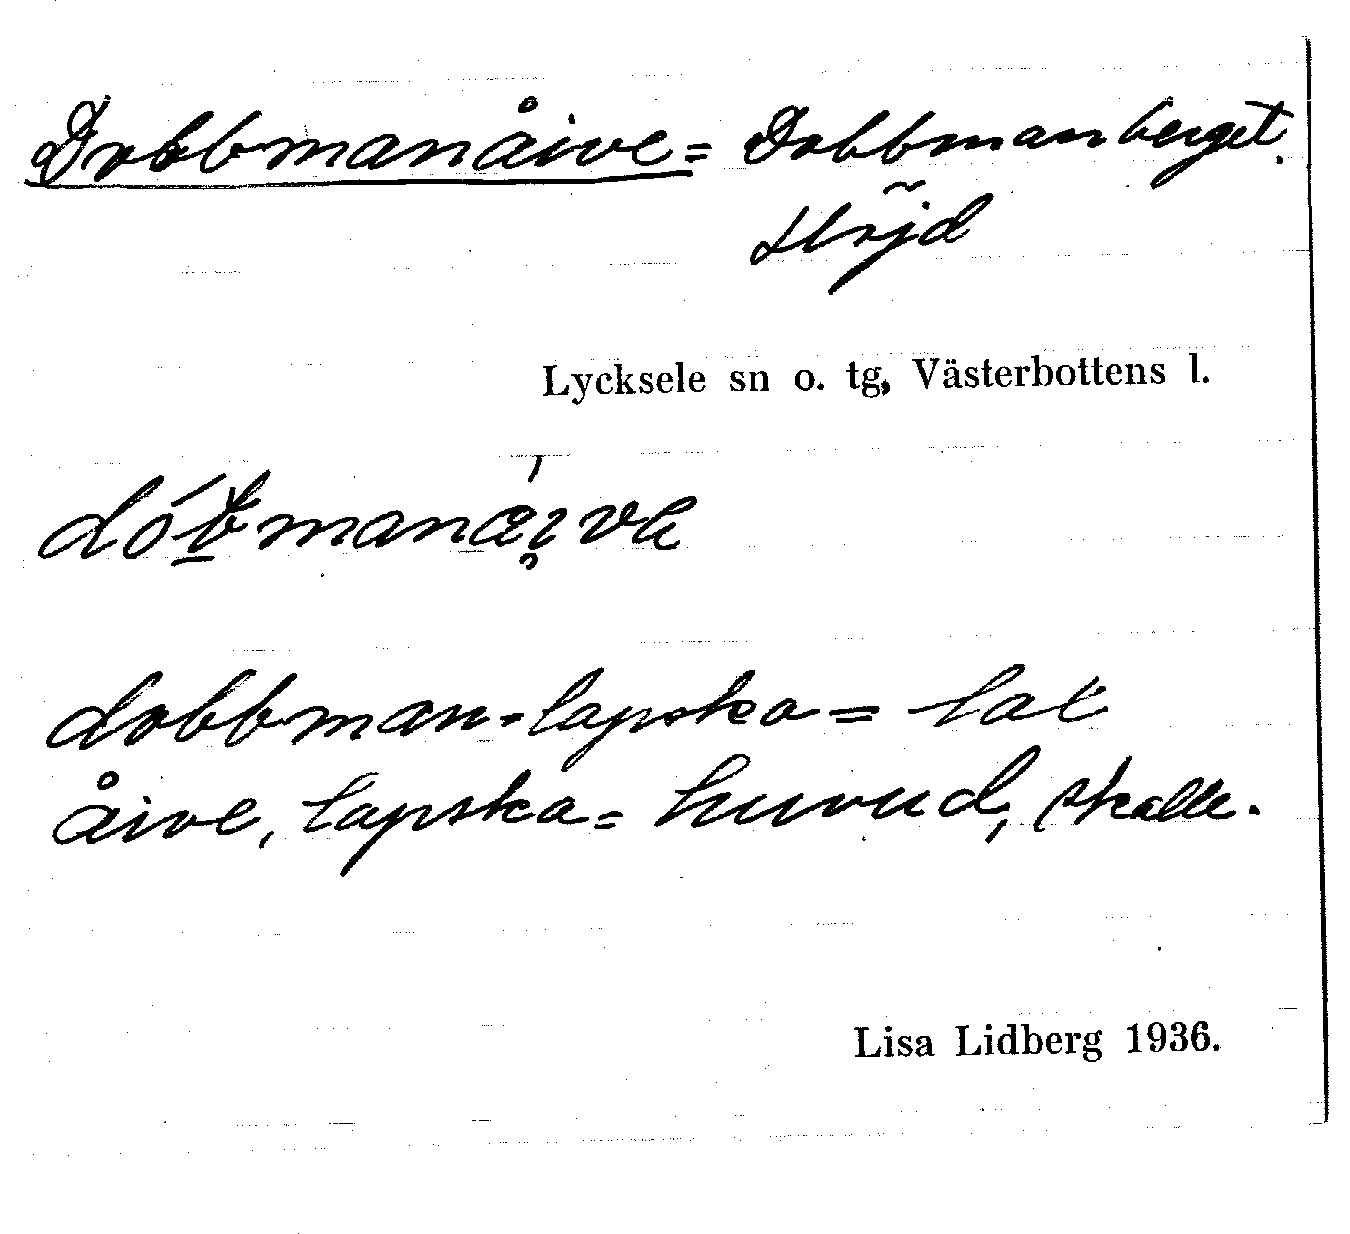 Dobbmanåive = Dobbmanberget.
Höjd
Lycksele sn o. tg, Västerbottens l.
dobbman-lapska = lat
åive, lapska = huvud, skalle.
Lisa Lidberg 1936.